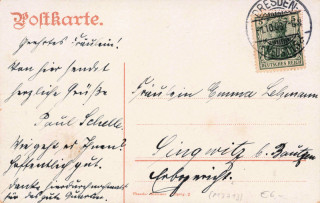 Postkarte.
DRESDEN
DEUTSCHES REICH
Geehrtes Fräulein!
Von hier sendet
herzliche Grüße
Paul Schelle.
Wie geht es Ihnen?
Hoffentlich gut.
Danke
für das gute
Fräulein Emma Lehmann
Singwitz b. Bautzen
Erbgericht.